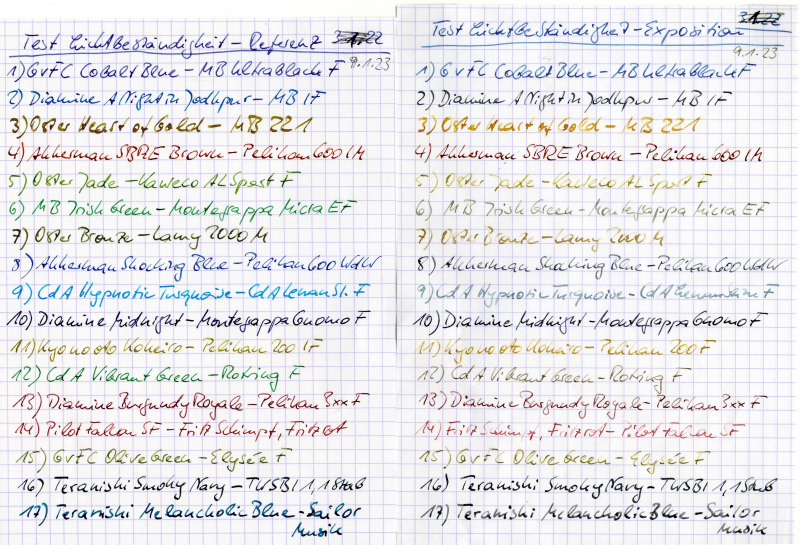 Test Lichtbeständigkeit – Referenz
9.1.23
1) GvFC Cobalt Blue – MB Ultrablack F
2) Diamine A Night in Jodhpur – MB 1F
3) Oster Heart of Gold – MB 221
4) Akkerman SBRE Brown – Pelikan 600 IM
5) Oster Jade – Kaweco AL Sport F
6) MB Irish Green – Montegrappa Micra EF
7) Oster Bronze – Lamy 2000 M
8) Akkerman Shocking Blue – Pelikan 600
9) CdA Hypnotic Turquoise – CdA Leman St. F
10) Diamine Midnight – Montegrappa Gnomo F
11) Kyonooto Kokeiro – Pelikan 200 IF
12) CdA Vibrant Green – Rotring F
13) Diamine Burgundy Royale – Pelikan 3xx F
14) Pilot Falcon SF – Fritz Schimpf, Fritzrot
15) GvFC Olive Green – Elysée F
16) Teranishi Smoky Navy – TWSBI 1,1 Stub
17) Teranishi Melancholic Blue – Sailor
Musik
Test Lichtbeständigkeit – Exposition
9.1.23
1) GvFC Cobalt Blue – MB Ultrablack F
2) Diamine A Night in Jodhpur – MB 1F
3) Oster Heart of Gold – MB 221
4) Akkerman SBRE Brown – Pelikan 600 IM
5) Oster Jade – Kaweco AL Sport F
6) MB Irish Green – Montegrappa Micra EF
7) Oster Bronze – Lamy 2000 M
8) Akkerman Shocking Blue – Pelikan 600
9) CdA Hypnotic Turquoise – CdA F
10) Diamine Midnight – Montegrappa Gnomo F
11) Kyonooto Kokeiro – Pelikan 200 F
12) CdA Vibrant Green – Rotring F
13) Diamine Burgundy Royale – Pelikan 3xx F
14) Fritz Schimpf, Fritzrot – Pilot Falcon SF
15) GvFC Olive Green – Elysée F
16) Teranishi Smoky Navy – TWSBI 1,1 Stub
17) Teranishi Melancholic Blue – Sailor
Musik